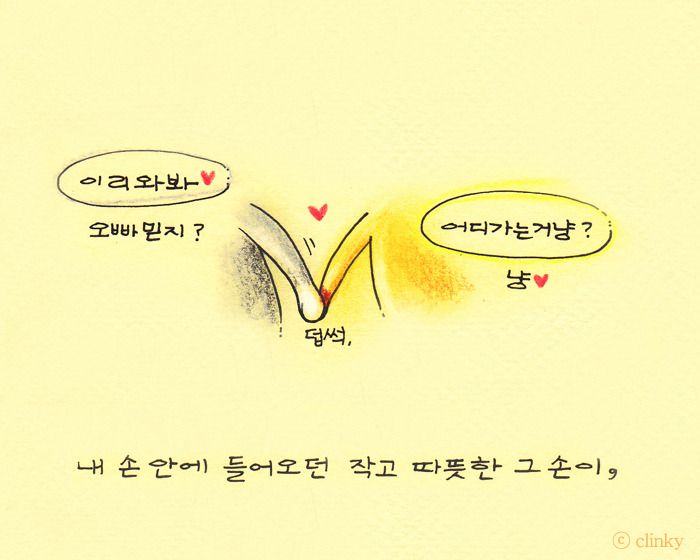 이리와봐♥
오빠믿지?
어디가는거냥?
냥♥
덥썩,
내 손 안에 들어오던 작고 따뜻한 그 손이,
ⓒ clinky